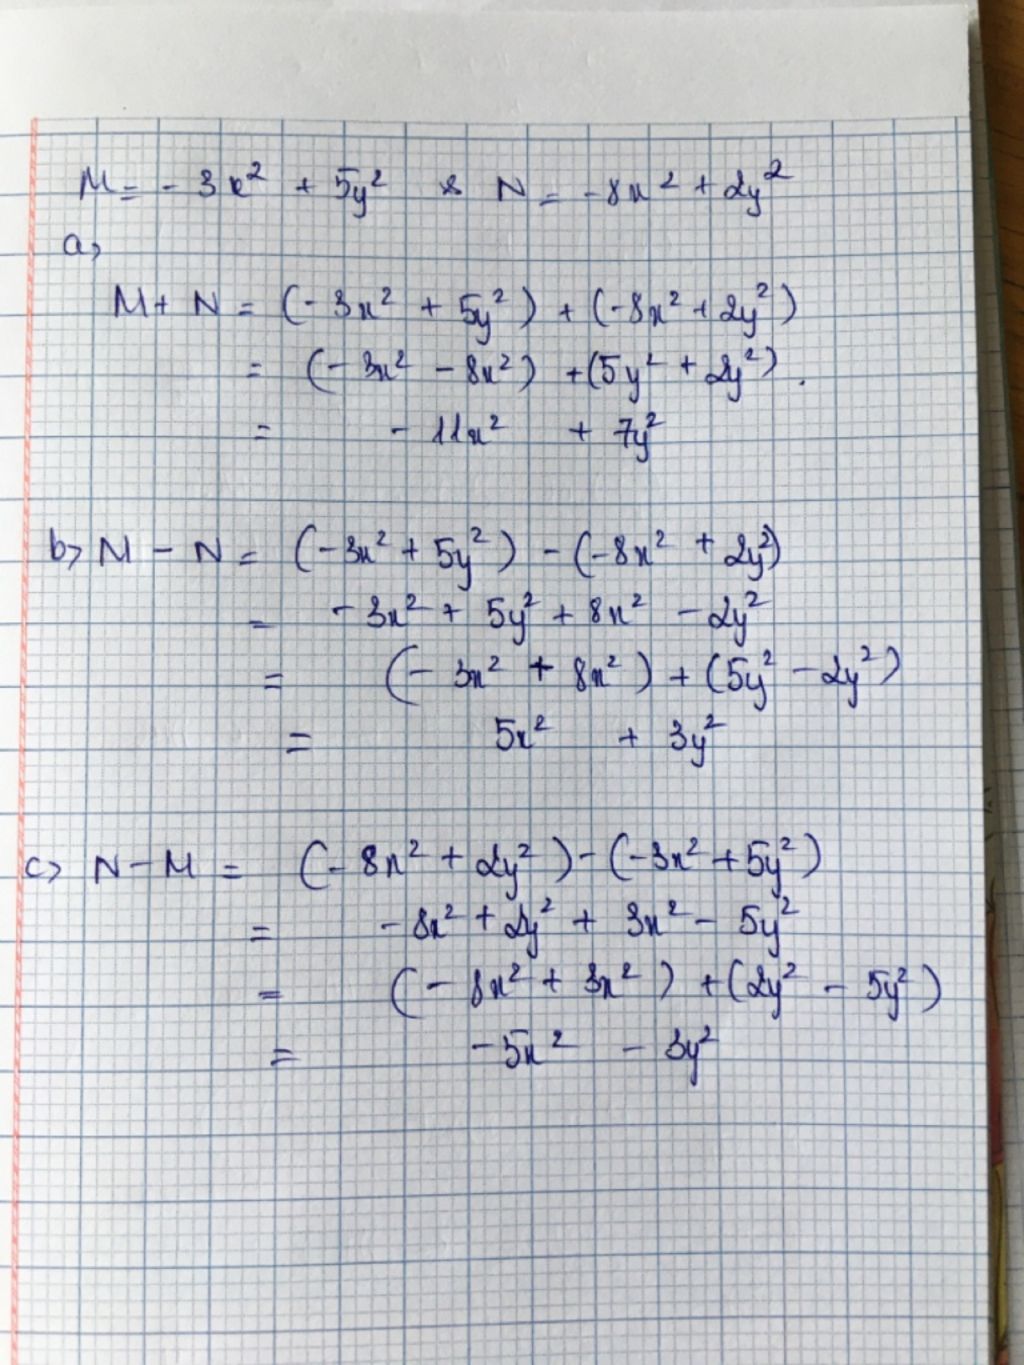 M = - 3x² + 5y² & N = -8x² + 2y²
a,
M + N = (- 3x² + 5y²) + (-8x² + 2y²)
= (- 3x² - 8x²) + (5y² + 2y²).
= - 11x² + 7y²
b> M - N = (-3x² + 5y²) - (-8x² + 2y²)
= -3x² + 5y² + 8x² - 2y²
= (- 3x² + 8x²) + (5y² - 2y²)
= 5x² + 3y²
c> N - M = (-8x² + 2y²) - (-3x² + 5y²)
= -8x² + 2y² + 3x² - 5y²
= (- 8x² + 3x²) + (2y² - 5y²)
= -5x² - 3y²